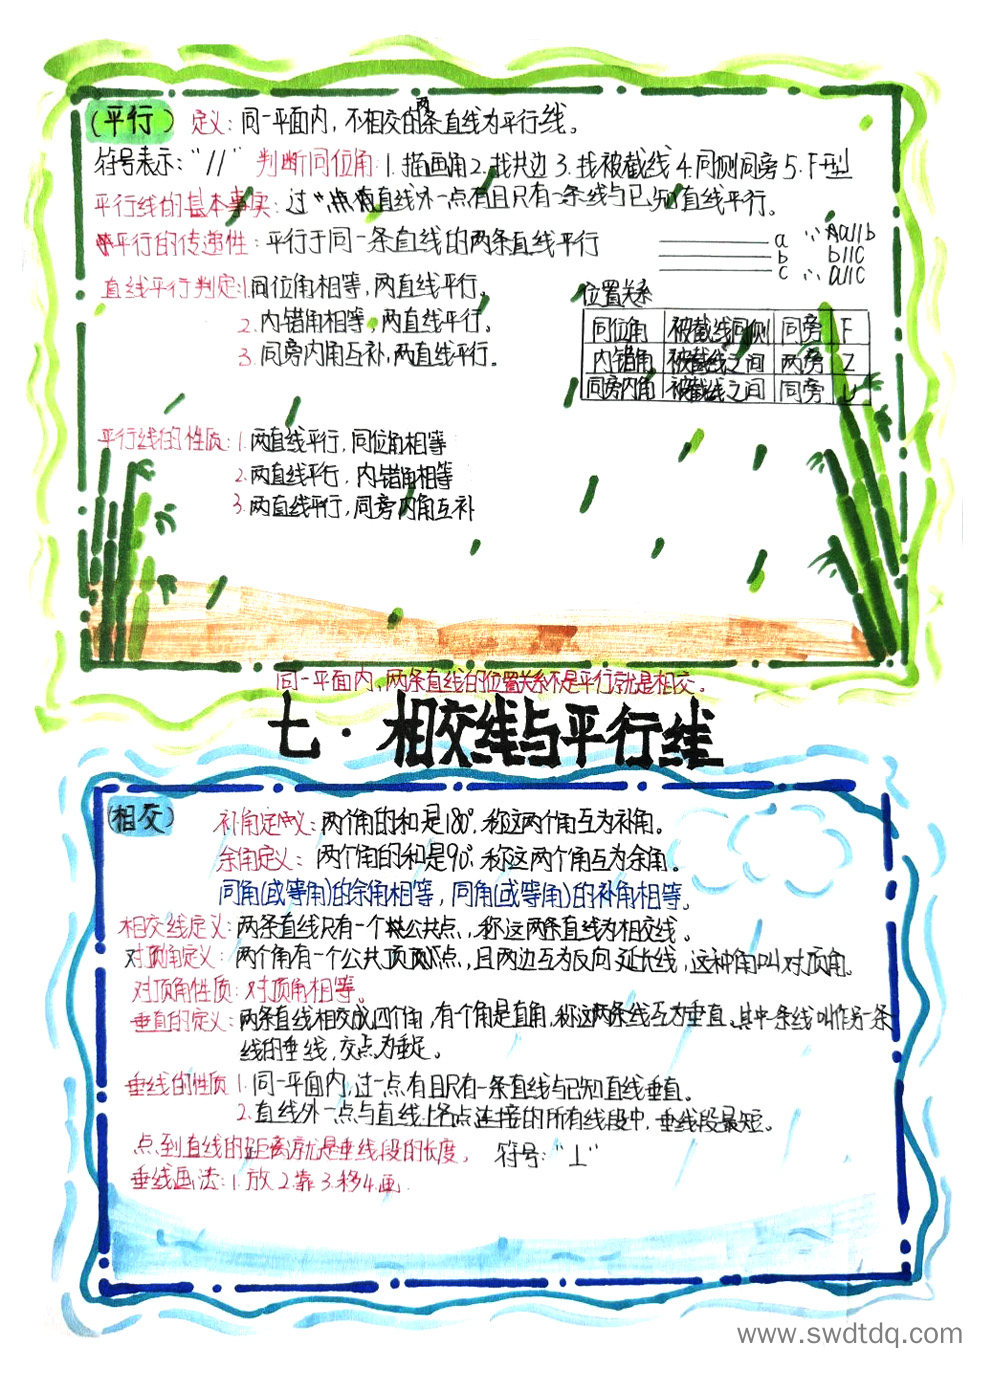 (平行) 定义：同一平面内，不相交的两条直线为平行线。
符号表示："//" 判断同位角：1.描画角2.找共边3.找被截线4.同侧同旁5.F型
平行线的基本事实：过直线外一点有且只有一条线与已知直线平行。
平行的传递性：平行于同一条直线的两条直线平行
a ∵ a//b
b b//c
c ∴ a//c
直线平行判定：1.同位角相等，两直线平行。
2.内错角相等，两直线平行。
3.同旁内角互补，两直线平行。
位置关系
同位角 被截线同侧 同旁 F
内错角 被截线之间 两旁 Z
同旁内角 被截线之间 同旁 U
平行线的性质：1.两直线平行，同位角相等
2.两直线平行，内错角相等
3.两直线平行，同旁内角互补
同一平面内，两条直线的位置关系不是平行就是相交。
七·相交线与平行线
(相交) 补角定义：两个角的和是180°，称这两个角互为补角。
余角定义：两个角的和是90°，称这两个角互为余角。
同角(或等角)的余角相等，同角(或等角)的补角相等。
相交线定义：两条直线只有一个公共点，称这两条直线为相交线。
对顶角定义：两个角有一个公共顶点，且两边互为反向延长线，这种角叫对顶角。
对顶角性质：对顶角相等。
垂直的定义：两条直线相交成四个角，有个角是直角，称这两条线互为垂直。其中一条线叫作另一条
线的垂线，交点为垂足。
垂线的性质 1.同一平面内，过一点有且只有一条直线与已知直线垂直。
2.直线外一点与直线上各点连接的所有线段中，垂线段最短。
点到直线的距离就是垂线段的长度。 符号："⊥"
垂线画法：1.放2.靠3.移4.画.
www.swdtdq.com